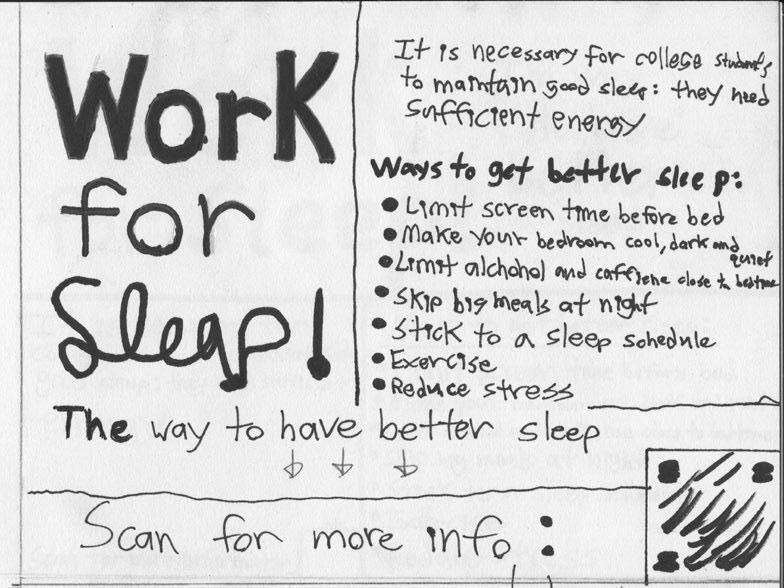 Work
for
Sleep!
It is necessary for college students,
to maintain good sleep: they need
sufficient energy
Ways to get better sleep:
• Limit screen time before bed
• Make your bedroom cool, dark and quiet
• Limit alchohol and caffiene close to bedtime
• Skip big meals at night
• Stick to a sleep schedule
• Exercise
• Reduce stress
The way to have better sleep
Scan for more info: